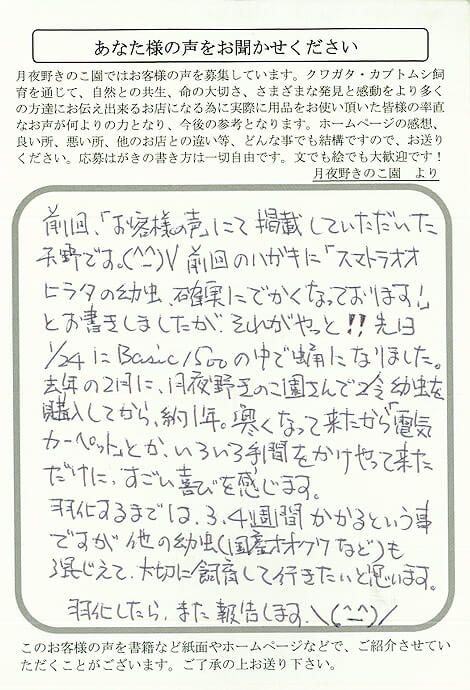 あなた様の声をお聞かせください
月夜野きのこ園ではお客様の声を募集しています。クワガタ・カブトムシ飼
育を通じて、自然との共生、命の大切さ、さまざまな発見と感動をより多く
の方達にお伝え出来るお店になる為に実際に用品をお使い頂いた皆様の率直
なお声が何よりの力となり、今後の参考となります。ホームページの感想、
良い所、悪い所、他のお店との違い等、どんな事でも結構ですので、お送り
ください。応募はがきの書き方は一切自由です。文でも絵でも大歓迎です！
月夜野きのこ園 より
前回、「お客様の声」にて掲載していただいた
天野です。(^_^)V 前回のハガキに「スマトラオオ
ヒラタの幼虫、確実にでかくなっております！」
とお書きしましたが、それがやっと!! 先日
1/24にBasic1500の中で蛹になりました。
去年の2月に、月夜野きのこ園さんで2令幼虫を
購入してから、約1年。寒くなって来たから「電気
カーペット」とか、いろいろ手間をかけやって来た
だけに、すごい喜びを感じます。
羽化するまでは、3、4週間かかるという事
ですが他の幼虫(国産オオクワなど)も
混じえて、大切に飼育して行きたいと思います。
羽化したら、また報告します。\(^_^)/
このお客様の声を書籍など紙面やホームページなどで、ご紹介させてい
ただくことがございます。ご了承の上お送り下さい。